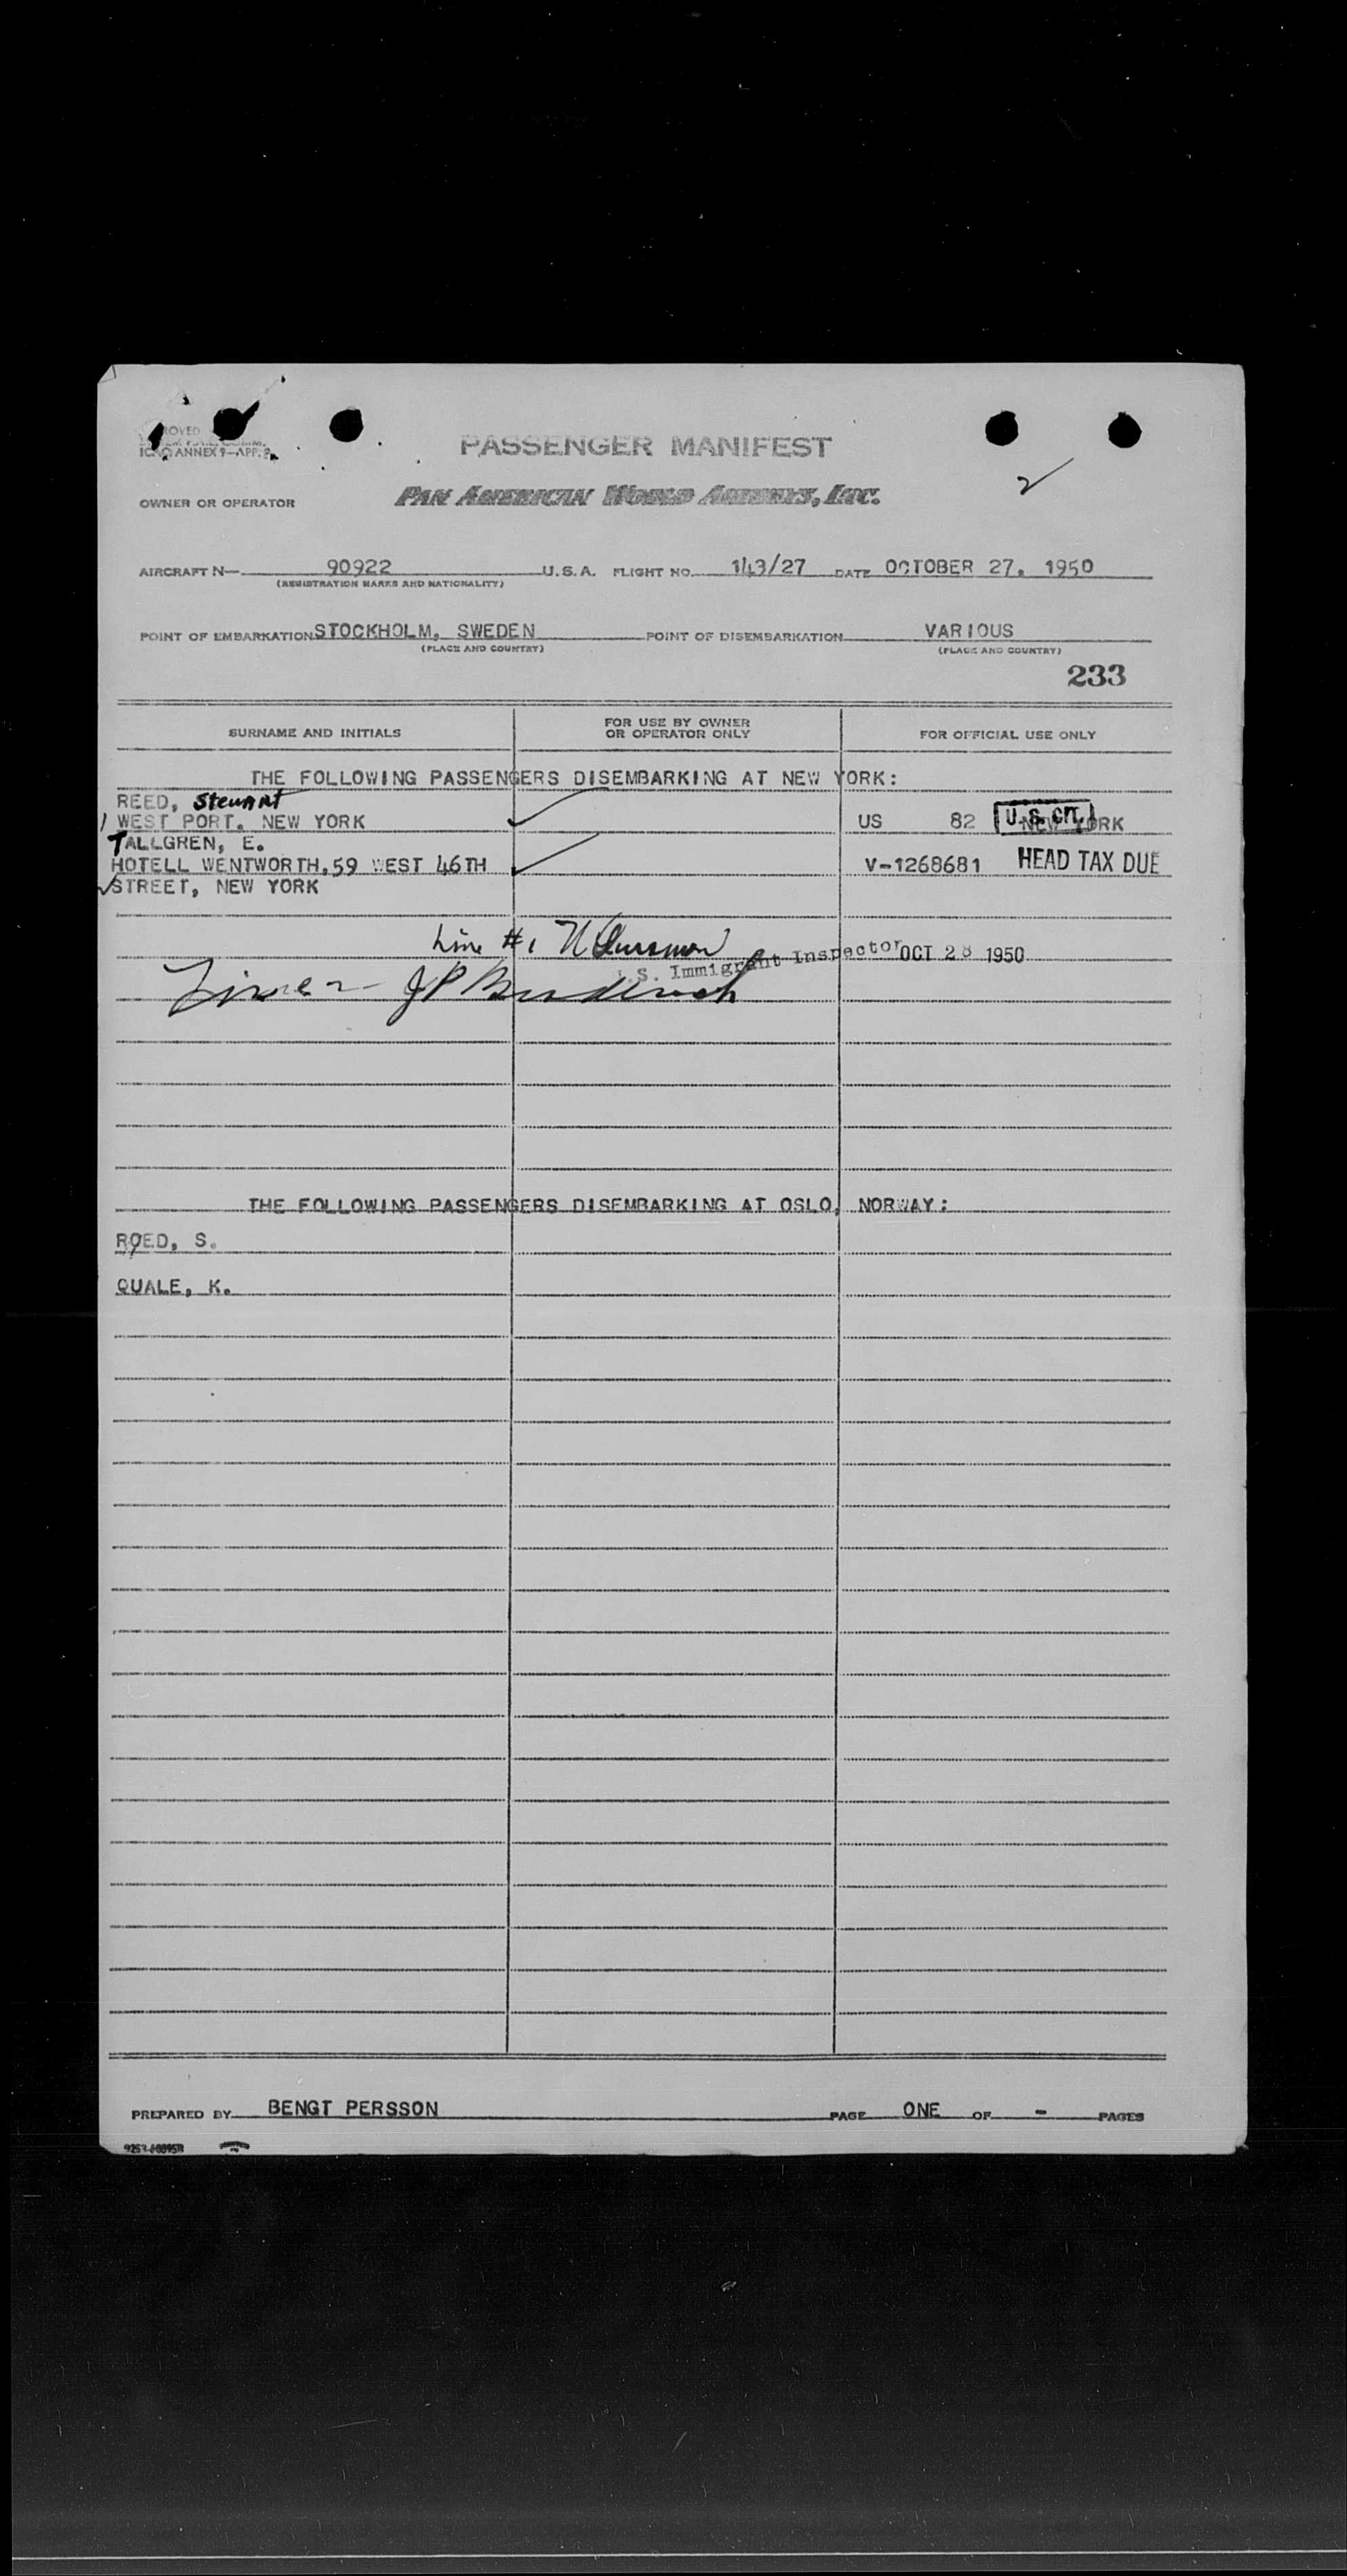 PASSENGER MANIFEST
ICAO ANNEX 9—APP. 2
OWNER OR OPERATOR PAN AMERICAN WORLD AIRWAYS, INC.
2
AIRCRAFT N— 90922 U.S.A. FLIGHT NO. 143/27 DATE OCTOBER 27, 1950
(REGISTRATION MARKS AND NATIONALITY)
POINT OF EMBARKATION STOCKHOLM, SWEDEN POINT OF DISEMBARKATION VARIOUS
(PLACE AND COUNTRY) (PLACE AND COUNTRY)
233
SURNAME AND INITIALS FOR USE BY OWNER OR OPERATOR ONLY FOR OFFICIAL USE ONLY
THE FOLLOWING PASSENGERS DISEMBARKING AT NEW YORK:
REED, Stewart
1 WEST PORT. NEW YORK US 82 NEW YORK U.S. CIT.
TALLGREN, E.
HOTELL WENTWORTH,59 WEST 46TH V-1268681 HEAD TAX DUE
STREET, NEW YORK
Line #1
U.S. Immigrant Inspector OCT 28 1950
THE FOLLOWING PASSENGERS DISEMBARKING AT OSLO, NORWAY:
ROED, S.
QUALE, K.
PREPARED BY BENGT PERSSON PAGE ONE OF - PAGES